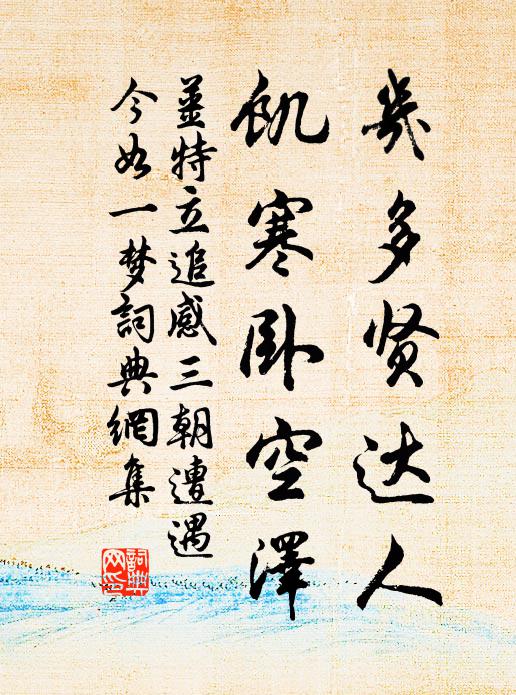 幾多贤达人
飢寒卧空澤
姜特立追感三朝遭遇
今如一梦詞典網集
詞典网印